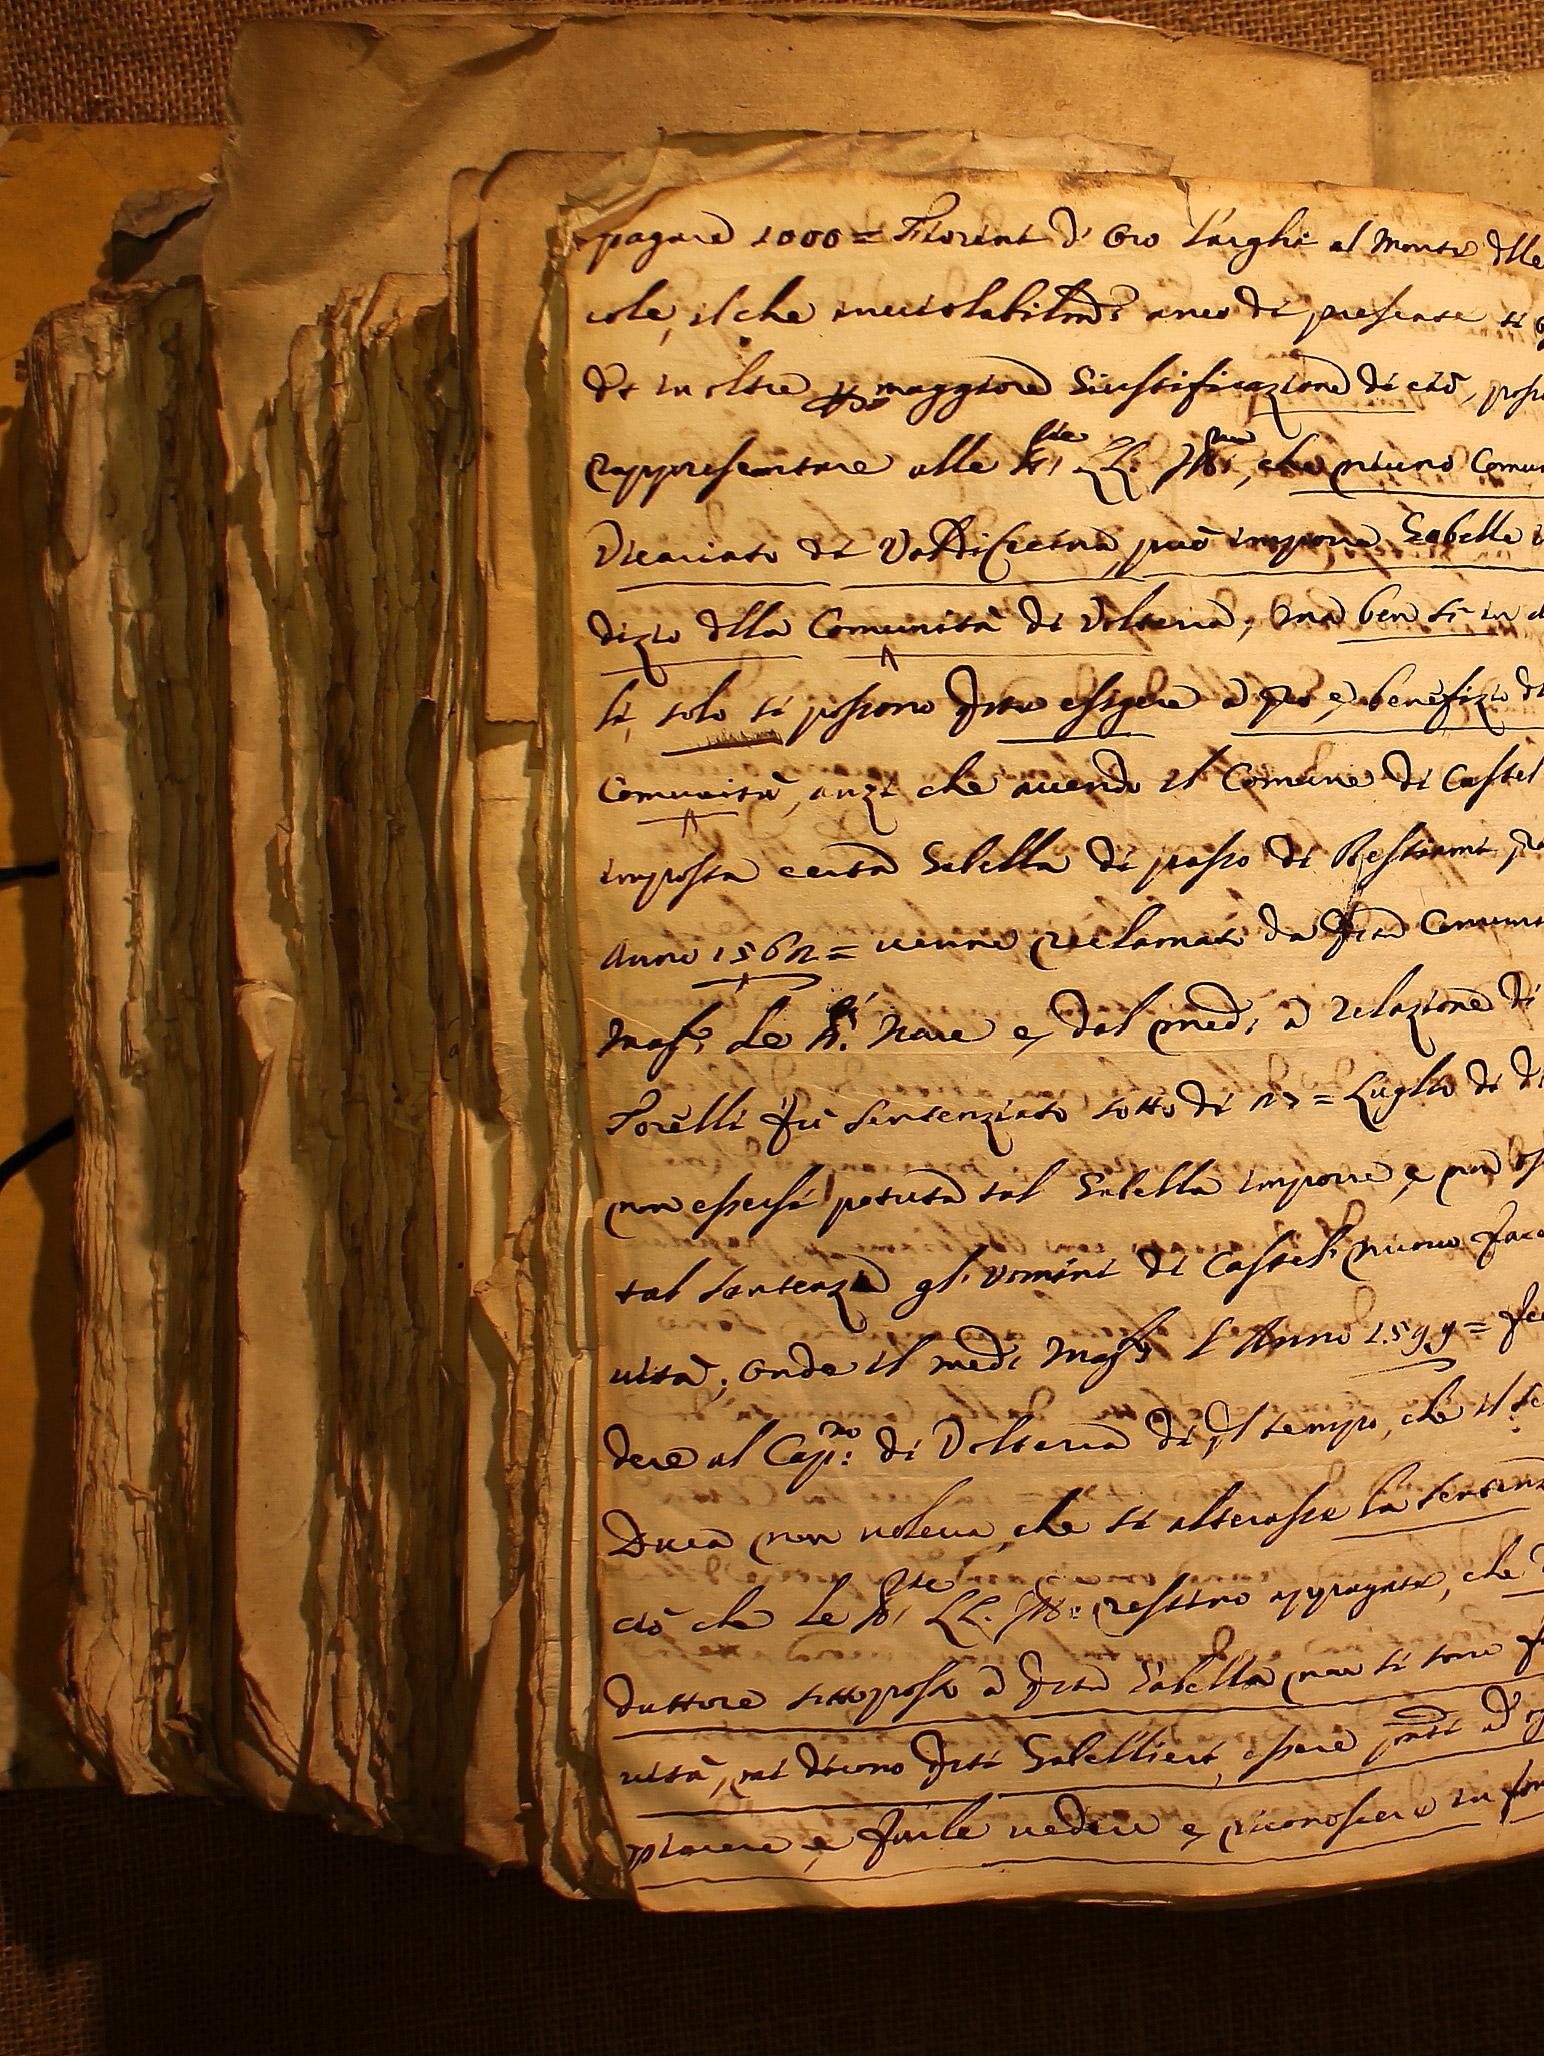 pagare 1000 = Fiorini d'Oro Larghi al Monte dlle
cole, il che inuiolabilmte: anco di presente si
Et in oltre maggiore Giustificazione di ciò, poss
rappresentare alle LL. che niuno Comun
Vicariato di Val di Cecina, può imporre Gabelle
dizio dlla Comunità di Volterra, ma ben sì in
li, solo si possono essigere a pro, e benefizio di
Comunità, anzi che auendo il Comune di Castel
imposta certa Gabella di passo di Bestiami
Anno 1562 = uenne reclamato da dta Comun
Mag: Le Noue e, dal med: a relazione di
Torelli fù sentenziato sotto di 27 = Luglio di
non essersi potuta tal Gabella imporre, e non os
tal sentenza gl' uomini di Castel: nuouo
uità; Onde il med: Mag: l'Anno 1599 =
dere al Capno: di Volterra di ql tempo, che il
Duca non uoleua, che si alterasse la sentenz
ciò che le LL. restino appagate, che
duttore sottoposto a dta Gabella non si
uità, mi dicono dti Gabellieri, essere ponti ad
piacere, e facile uedere e, riconoscere in